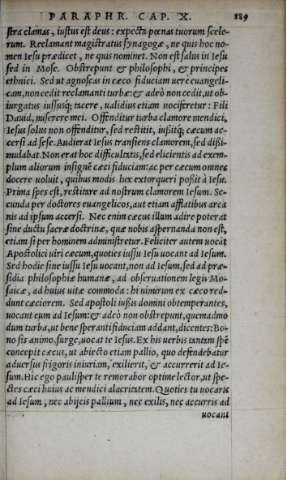 PARAPHR. CAP. X. 189
stra clamas, iustus est deus: expecta pœnas tuorum scele-
rum. Reclamant magistratus synagogæ, ne quis hoc no-
men Iesu prædicet, ne quis nominet. Non est salus in Iesu
sed in Mose. Obstrepunt & philosophi, & principes
ethnici. Sed ut agnoscas in cæco fiduciam uere euangeli-
cam, non cedit reclamanti turbæ: & adeò non cedit, ut ob-
iurgatus iussusq; tacere, ualidius etiam uociferetur: Fili
Dauid, miserere mei. Offenditur turba clamore mendici,
Iesus solus non offenditur, sed restitit, iussitq; cæcum ac-
cersi ad sese. Audierat Iesus transiens clamorem, sed dissi-
mulabat. Non erat hoc difficultatis, sed elicientis ad exem-
plum aliorum insignē cæci fiduciam: ac per cæcum omnes
docere uoluit, quibus modis lux extorqueri possit à Iesu.
Prima spes est, restitisse ad nostrum clamorem Iesum. Se-
cunda per doctores euangelicos, aut etiam afflatibus arca
nis ad ipsum accersi. Nec enim cæcus illum adire poterat
sine ductu sacræ doctrinæ, quæ nobis aspernanda non est,
etiam si per hominem administretur. Feliciter autem uocāt
Apostolici uiri cæcum, quoties iussu Iesu uocant ad Iesum.
Sed hodie sine iussu Iesu uocant, non ad Iesum, sed ad præ-
sidia philosophiæ humanæ, ad obseruationem legis Mo-
saicæ, ad huius uitæ commoda: hi nimirum ex cæco red-
dunt cæciorem. Sed apostoli iussis domini obtemperantes,
uocant eum ad Iesum: & adeò non obstrepunt, quemadmo
dum turba, ut bene speranti fiduciam addant, dicentes: Bo-
no sis animo, surge, uocat te Iesus. Ex his uerbis tantam spē
concepit cæcus, ut abiecto etiam pallio, quo defendebatur
aduersus frigoris iniuriam, exilierit, & accurrerit ad Ie-
sum. Hic ego paulisper te remorabor optime lector, ut spe-
ctes cæci huius ac mendici alacritatem. Quoties tu uocaris
ad Iesum, nec abijcis pallium, nec exilis, nec accurris ad
uocant